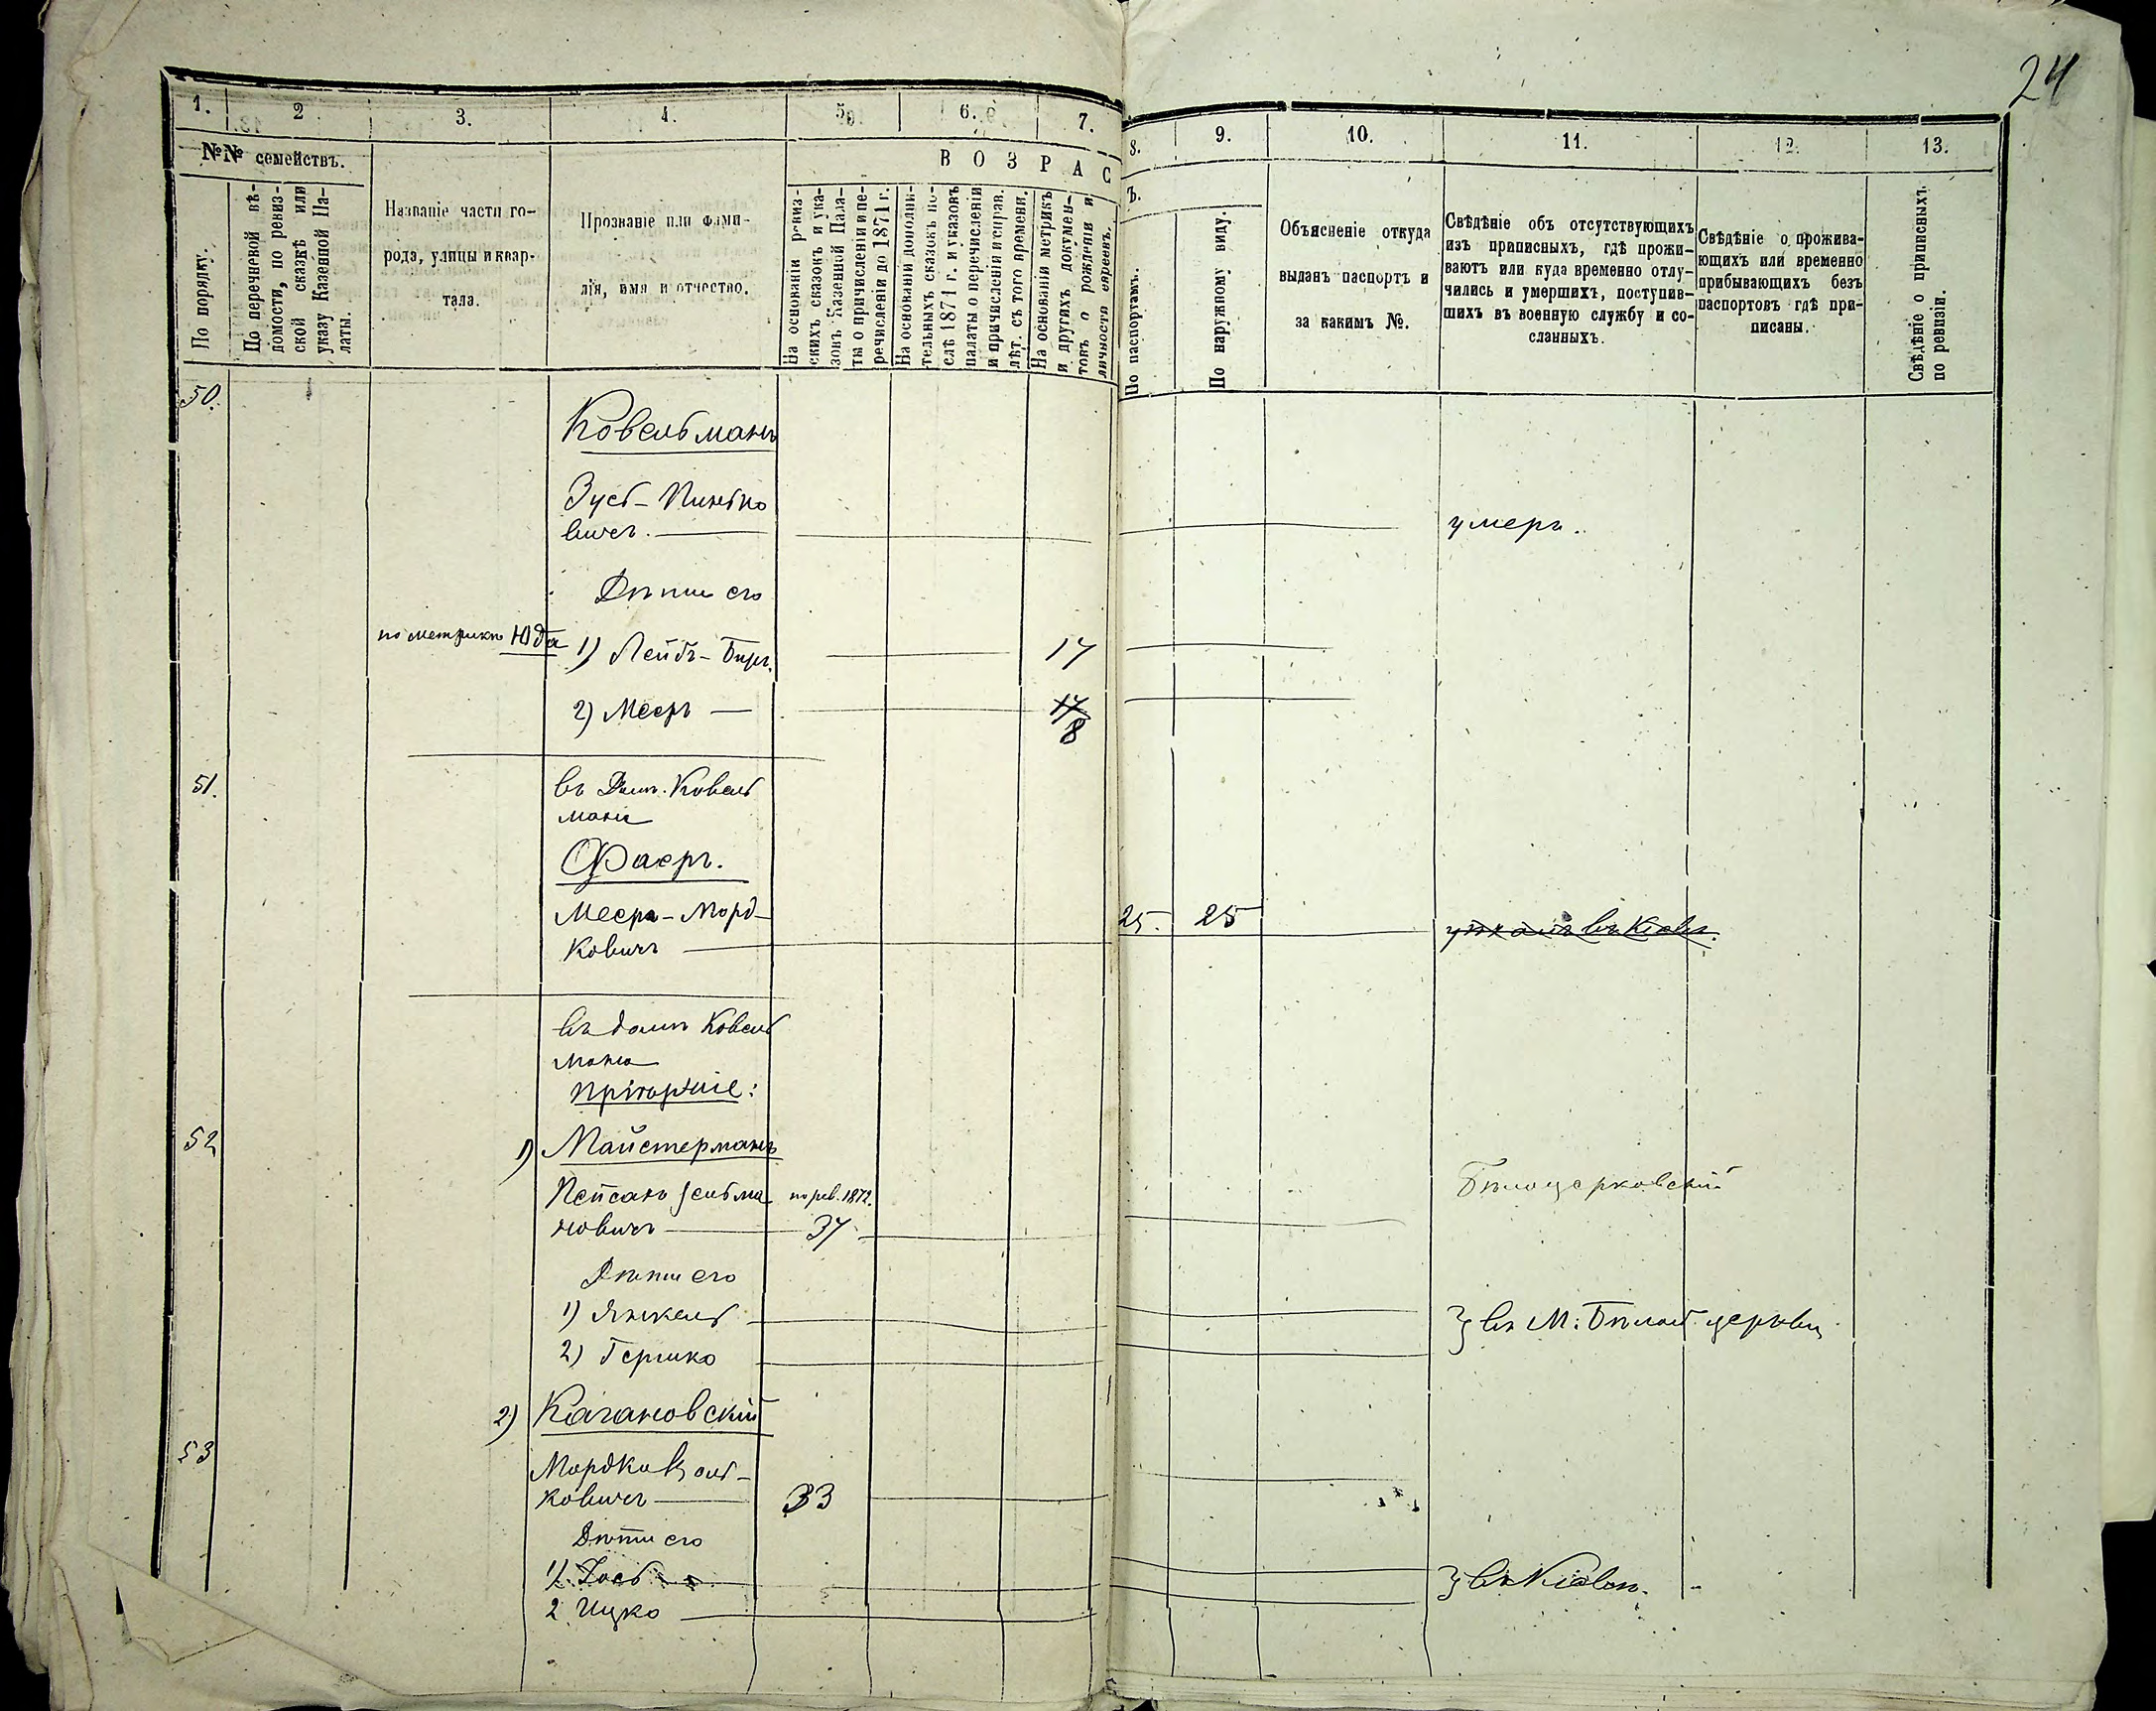 24
1. 2 3. 4. 5. 6. 7. 8. 9. 10. 11. 12. 13.
№№ семействъ.
По порядку.
По перечневой вѣ-
домости, по ревиз-
ской сказкѣ или
указу Казенной Па-
латы.
Названіе части го-
рода, улицы и квар-
тала.
Прозваніе или фами-
лія, имя и отчество.
ВОЗРАС
Ъ.
На основаніи ревиз-
скихъ сказокъ и ука-
зовъ Казенной Пала-
ты о причисленіи и пе-
речисленіи до 1871 г.
На основаніи дополни-
тельныхъ сказокъ по-
слѣ 1871 г. и указовъ
палаты о перечисленіи
и причисленіи и справ.
лѣт. съ того времени.
На основаніи метрикъ
и другихъ докумен-
товъ о рожденіи и
личности евреевъ.
По паспортамъ.
По наружному виду.
Объясненіе откуда
выданъ паспортъ и
за какимъ №.
Свѣдѣніе объ отсутствующихъ
изъ приписныхъ, гдѣ прожи-
ваютъ или куда временно отлу-
чились и умершихъ, поступив-
шихъ въ военную службу и со-
сланныхъ.
Свѣдѣніе о прожива-
ющихъ или временно
прибывающихъ безъ
паспортовъ гдѣ при-
писаны.
Свѣдѣніе о приписныхъ
по ревизіи.
50.
Ковельманъ
Зусь-Пинько
вичъ.
умеръ.
Дѣти его
по метрикѣ Юда 1) Лейбъ-Беръ. 17
2) Мееръ 17
8
51.
въ Дом. Ковель
мана
Фаеръ.
Меера-Морд-
ковичъ 25. 25 уѣхалъ въ Кіевъ.
въ домѣ Ковель
мана
52 1) Майстерманъ
Лейсанъ Зельма по рев. 1872. Бѣлоцерковскій
новичъ 37
Дѣти его
1) Янкель } въ М. Бѣлой церкви
2) Гершко
2) Кагановскій
53
Мордко Вол-
ковичъ 33
Дѣти его
1) Іось } въ Кіевѣ.
2 Ицко